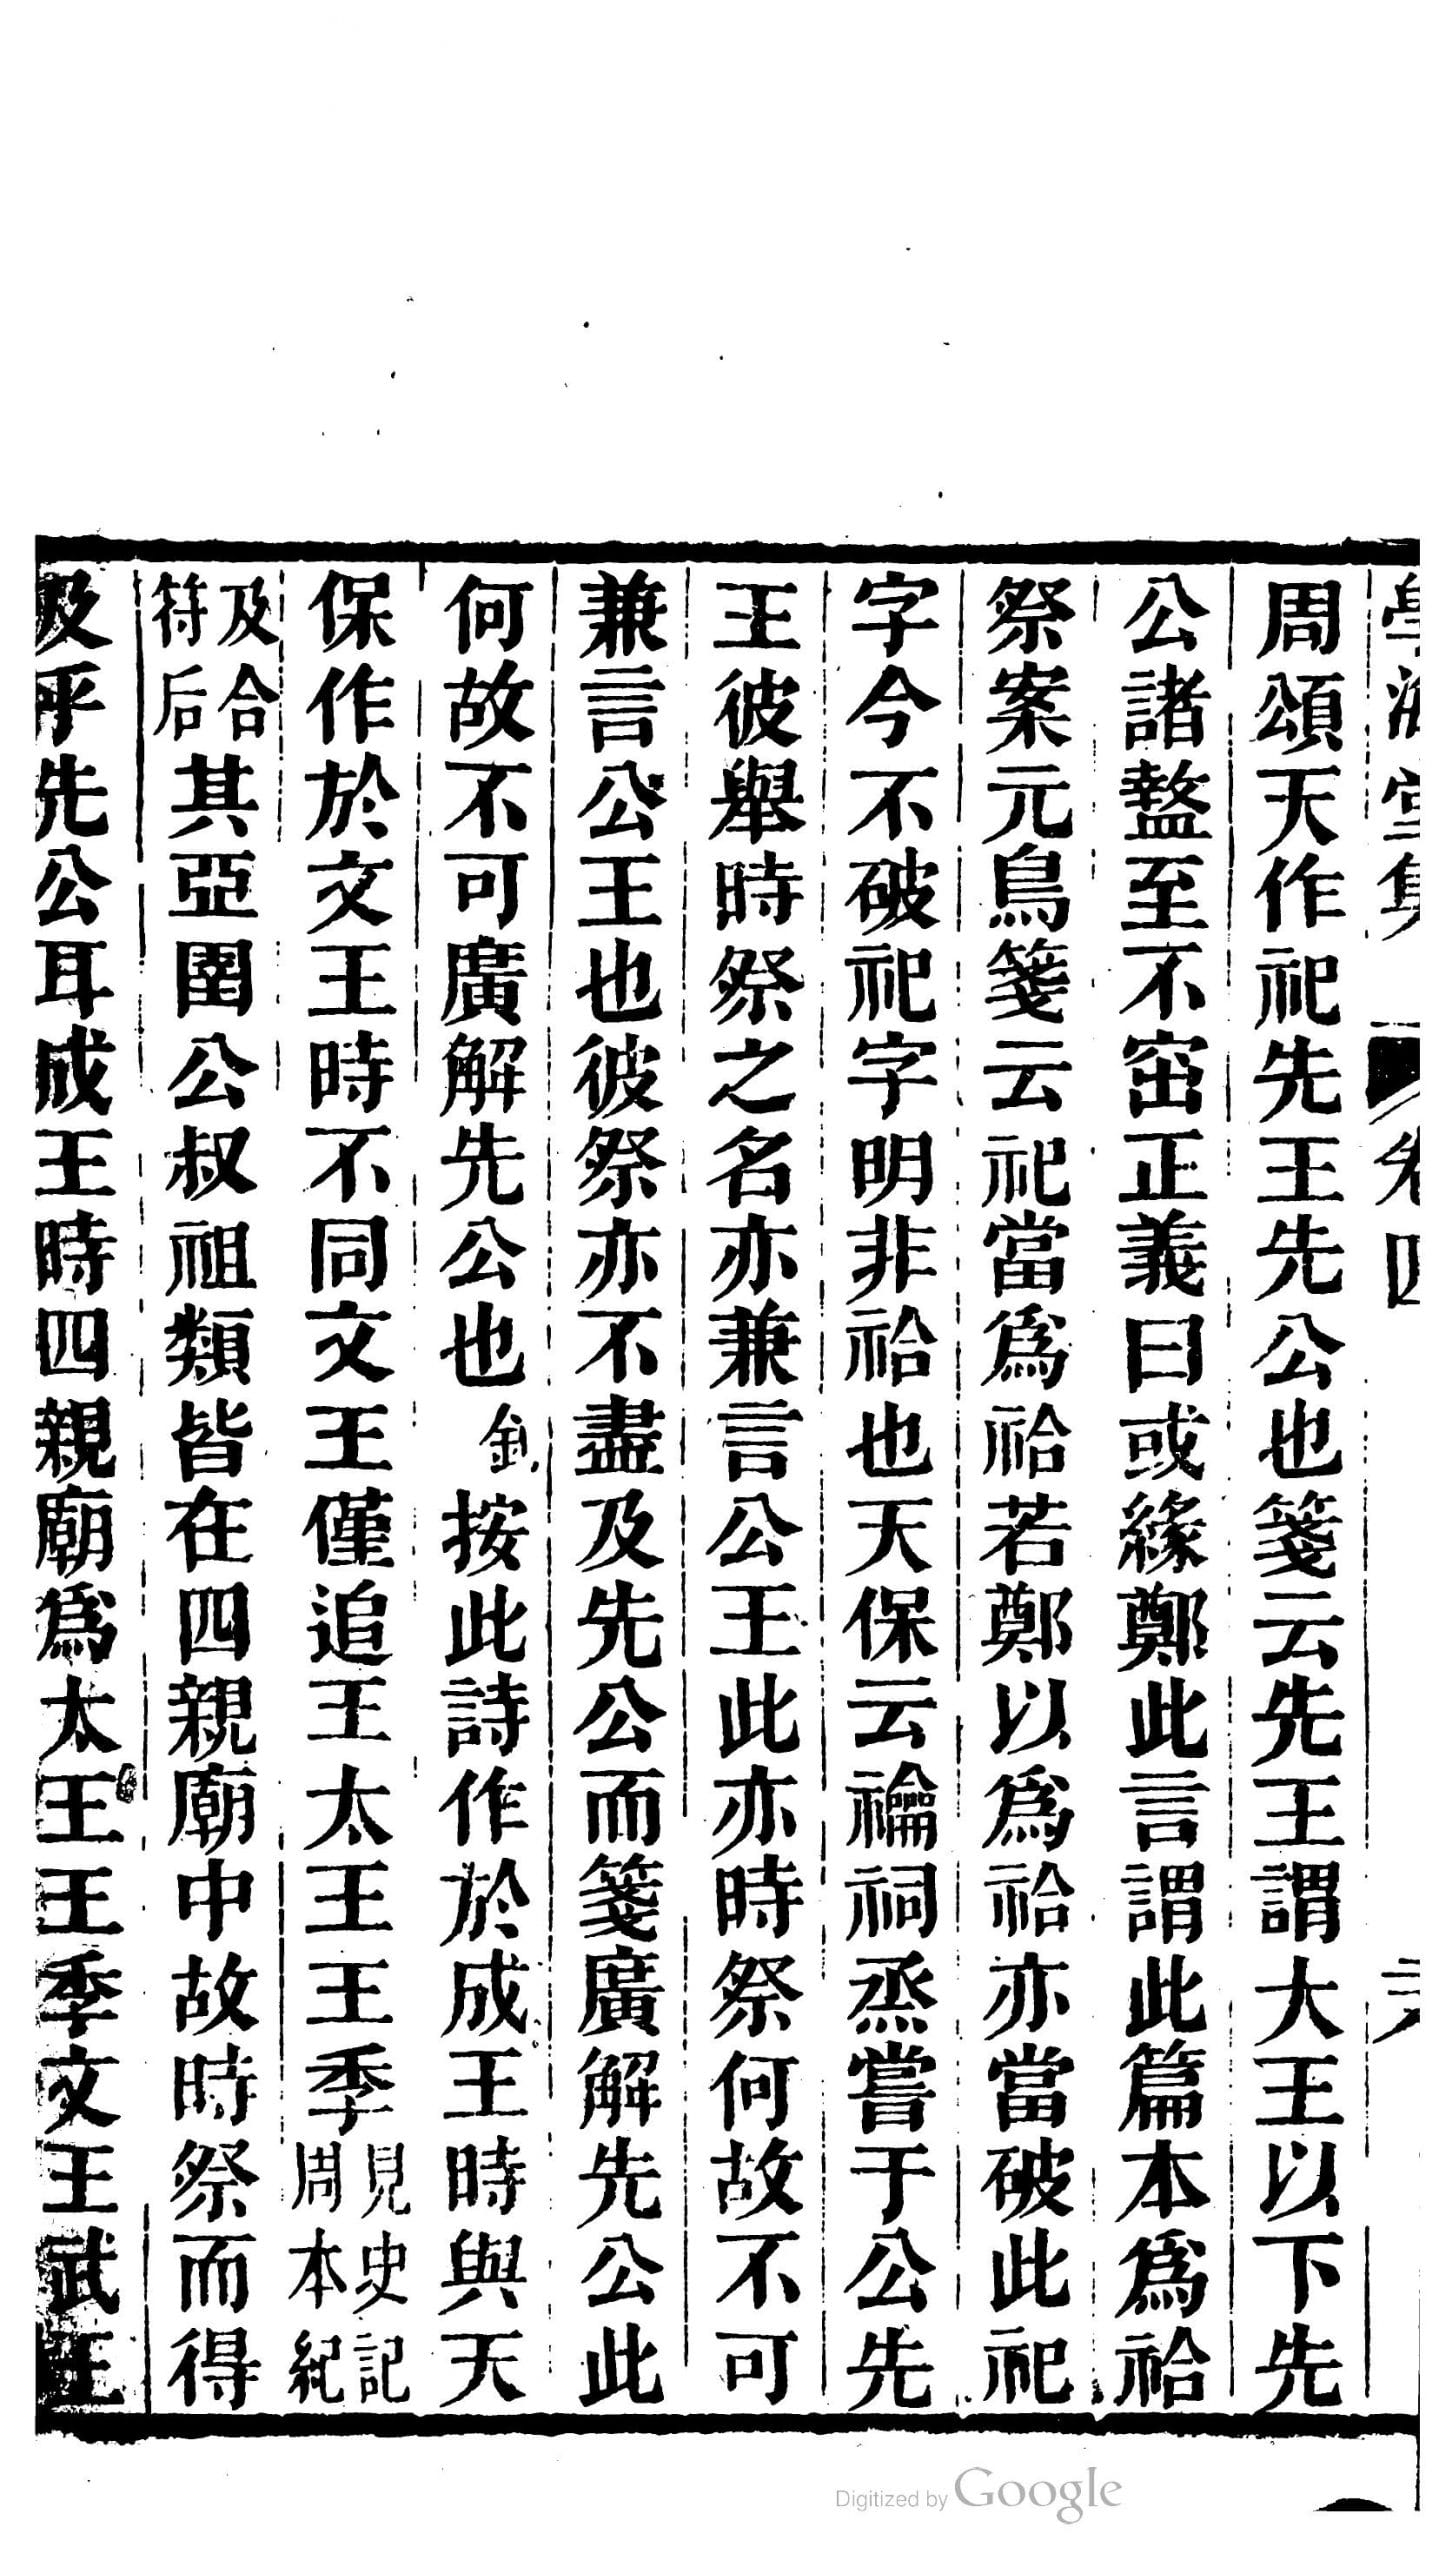 學海堂集 卷四
周頌天作祀先王先公也箋云先王謂大王以下先
公諸盩至不窋正義曰或緣鄭此言謂此篇本爲祫
祭案元鳥箋云祀當爲祫若鄭以爲祫亦當破此祀
字今不破祀字明非祫也天保云禴祠烝嘗于公先
王彼舉時祭之名亦兼言公王此亦時祭何故不可
兼言公王也彼祭亦不盡及先公而箋廣解先公此
何故不可廣解先公也 釗按此詩作於成王時與天
保作於文王時不同文王僅追王太王王季見史記周本紀
及合符后其亞圉公叔祖類皆在四親廟中故時祭而得
及乎先公耳成王時四親廟爲太王王季文王武王
Digitized by Google